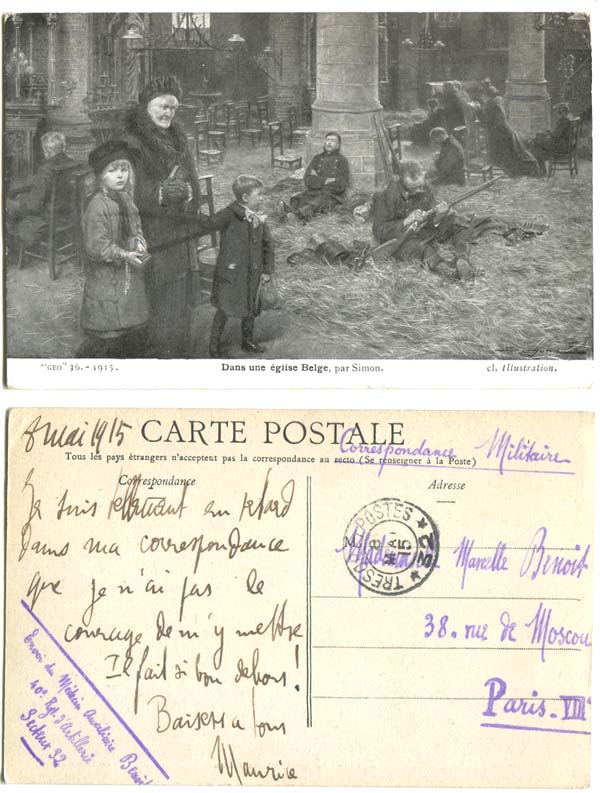 "GEO" 36. - 1915.
Dans une église Belge, par Simon.
cl. Illustration.
8 mai 1915
CARTE POSTALE
Tous les pays étrangers n'acceptent pas la correspondance au recto (Se renseigner à la Poste)
Correspondance Militaire
Correspondance
Adresse
Je suis tellement en retard
dans ma correspondance
que je n'ai pas le
courage de m'y mettre
Il fait si bon dehors!
Baisers a tous
Maurice
Envoi du Médecin Auxiliaire Benoit
40e Rgt d'Artillerie
Secteur 32
TRESOR ET POSTES
8
MAI
15
* 32 *
Marcelle Benoit
38. rue de Moscou
Paris. VIII